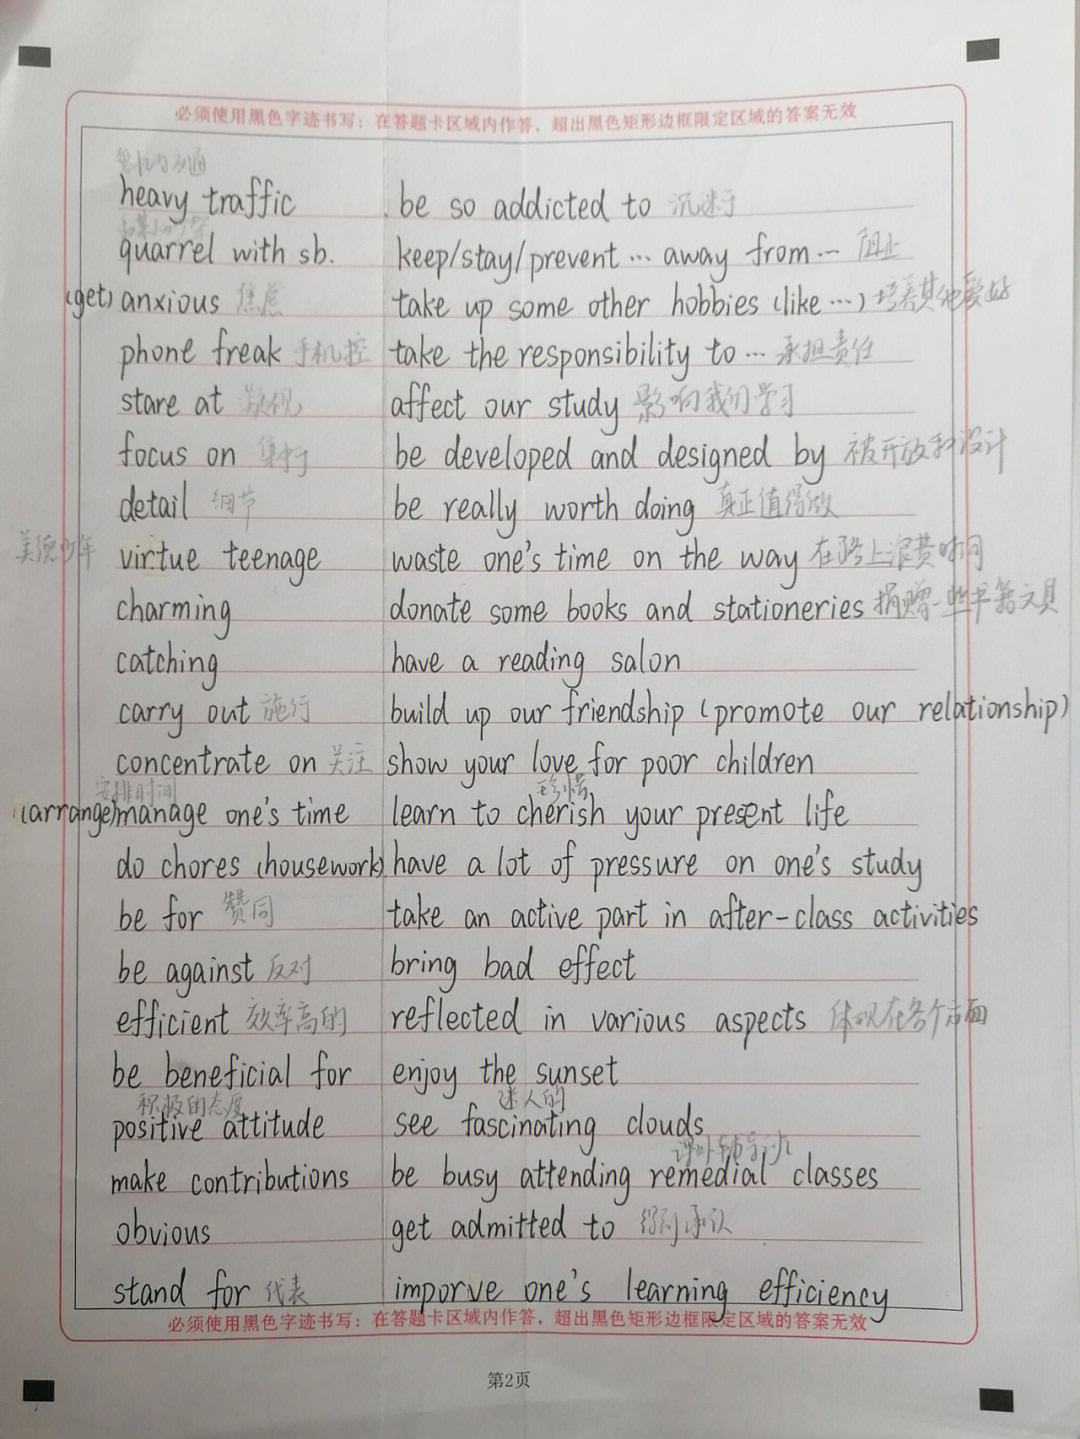 必须使用黑色字迹书写：在答题卡区域内作答，超出黑色矩形边框限定区域的答案无效
heavy traffic be so addicted to 沉迷于
quarrel with sb. keep/stay/prevent … away from … 阻止
(get) anxious 焦虑 take up some other hobbies (like …) 培养其他爱好
phone freak 手机控 take the responsibility to … 承担责任
stare at 凝视 affect our study 影响我们学习
focus on 集中于 be developed and designed by 被开放和设计
detail 细节 be really worth doing 真正值得做
美德少年 virtue teenage waste one's time on the way 在路上浪费时间
charming donate some books and stationeries 捐赠一些书籍文具
catching have a reading salon
carry out 施行 build up our friendship (promote our relationship)
concentrate on 关注 show your love for poor children
安排时间 珍惜
(arrange)manage one's time learn to cherish your present life
do chores (housework) have a lot of pressure on one's study
be for 赞同 take an active part in after-class activities
be against 反对 bring bad effect
efficient 效率高的 reflected in various aspects 体现在各个方面
be beneficial for enjoy the sunset
积极的态度 迷人的
positive attitude see fascinating clouds
课外辅导班
make contributions be busy attending remedial classes
obvious get admitted to 得到承认
stand for 代表 imporve one's learning efficiency
必须使用黑色字迹书写：在答题卡区域内作答，超出黑色矩形边框限定区域的答案无效
第2页